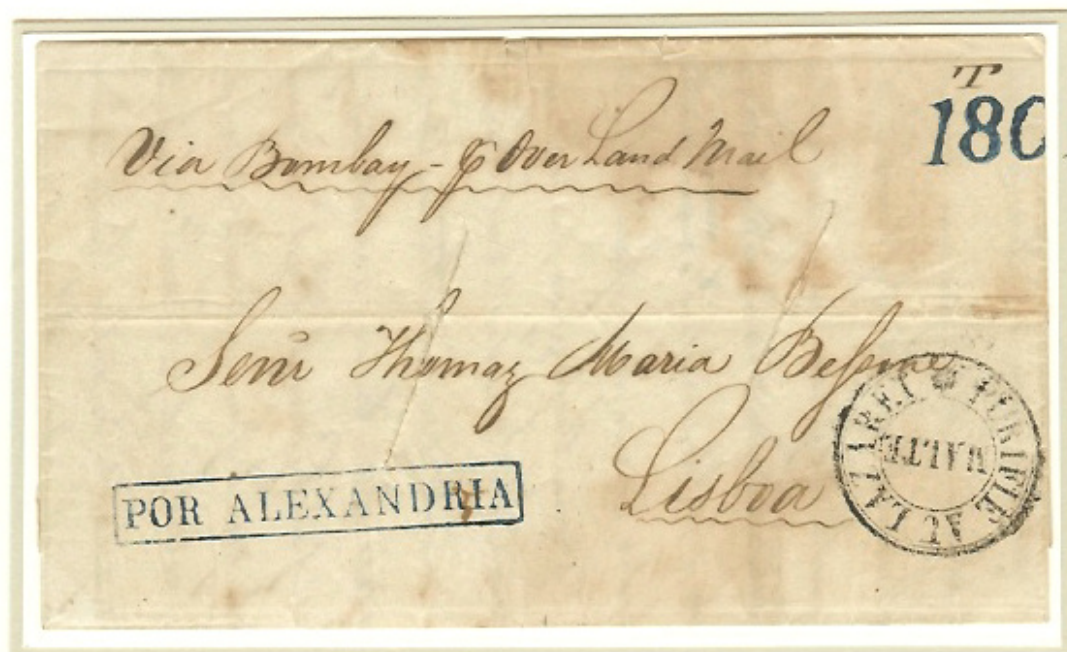 T
180
Via Bombay - p Over Land Mail
Senr Thomaz Maria Bessone
Lisboa
POR ALEXANDRIA
PURIFIÉ AU LAZARET
MALTE